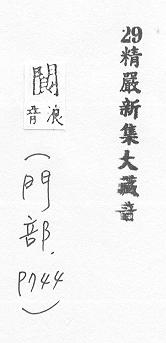 29精嚴新集大藏音
浪音
(門部、P744)